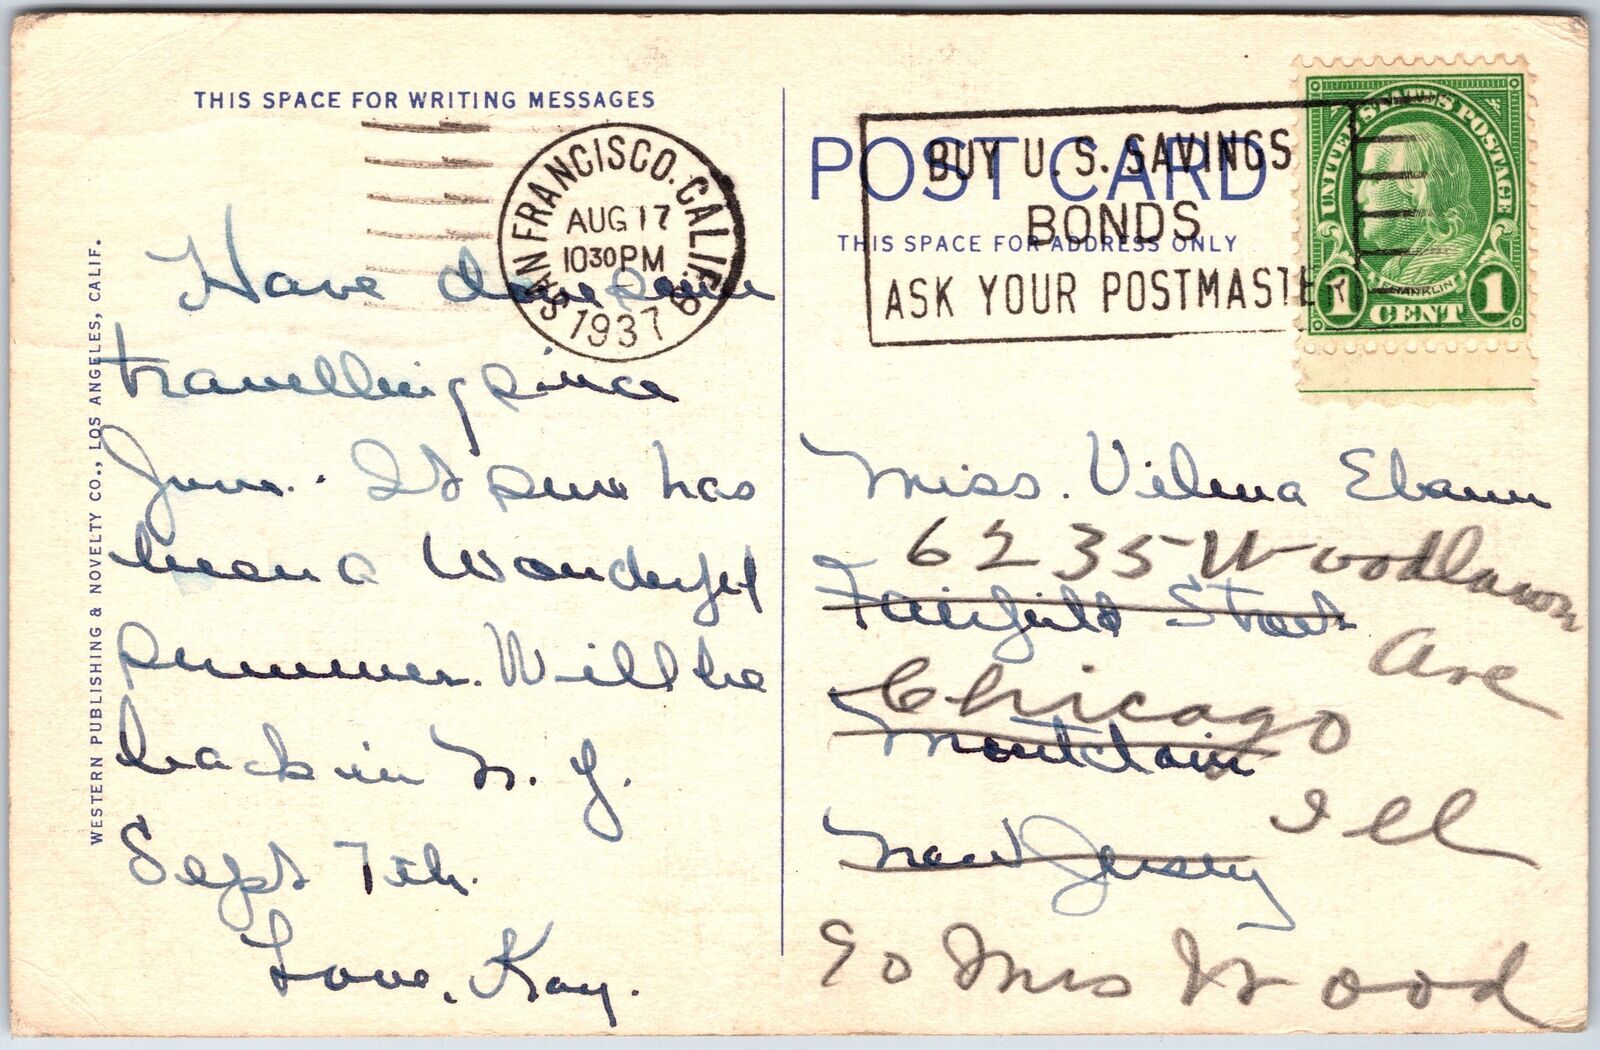 THIS SPACE FOR WRITING MESSAGES
SAN FRANCISCO, CALIF.
AUG 17
1030 PM
1937
Have done some
travelling since
June. It sure has
been a wonderful
summer. Will be
back in N. J.
Sept 7th.
Love, Kay.
WESTERN PUBLISHING & NOVELTY CO., LOS ANGELES, CALIF.
POST CARD
THIS SPACE FOR ADDRESS ONLY
BUY U.S. SAVINGS
BONDS
ASK YOUR POSTMASTER
UNITED STATES POSTAGE
FRANKLIN
1 CENT 1
Miss. Vilma
6235 Woodlawn
Ave
Fairfield Street
Chicago
Montclair
Ill
New Jersey
c/o Mrs Wood